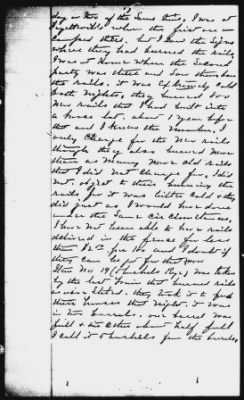 day or two of the same time, I was at
Fayetteville, when the first one
camped there, but I saw the signs
where they had burned the rails
I was at home when the second
party was there and saw them burn
the rails. it was extremely cold
both nights, they burned 300
New rails that I had built into
a horse lot, about 1 year before
that and I knew the number, I
only charge for the New rails
though they also burned more
than as many more old rails
that I did not charge for, I did
not object to their burning the
rails for it was bitter cold & they
did just as I would have done
under the same circumstances,
I have not been able to have rails
delivered in the fence for less
than and I doubt if
they can be got for that now
Item No 19 (6 bushels Rye,) was taken
by the last train that burned rails
as above stated. they took it to feed
their horses that night. it was
in two barrels, one barrel was
full & the other about half full
I call it 6 bushels from the barrels,